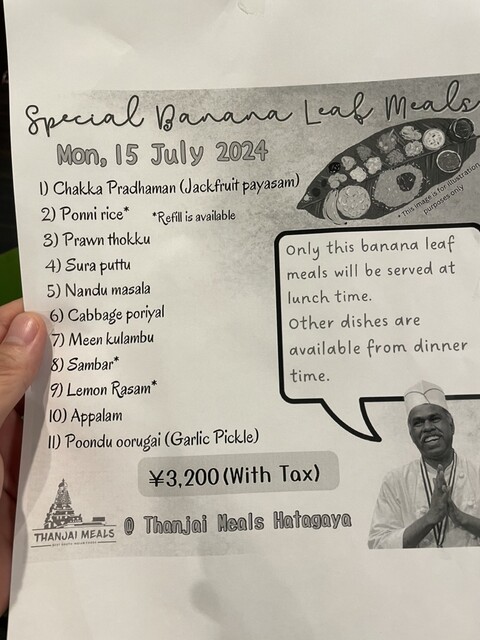 Special Banana Leaf Meals
Mon, 15 July 2024
1) Chakka Pradhaman (Jackfruit payasam)
2) Ponni rice* *Refill is available
3) Prawn thokku
4) Sura puttu
5) Nandu masala
6) Cabbage poriyal
7) Meen kulambu
8) Sambar*
9) Lemon Rasam*
10) Appalam
11) Poondu oorugai (Garlic Pickle)
* This image is for illustration
purposes only
Only this banana leaf
meals will be served at
lunch time.
Other dishes are
available from dinner
time.
¥3,200(With Tax)
THANJAI MEALS
@ Thanjai Meals Hatagaya